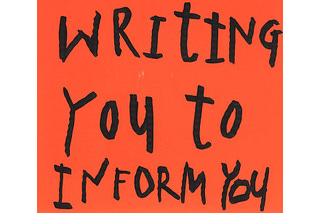 WRItING
You to
INFORM YOU